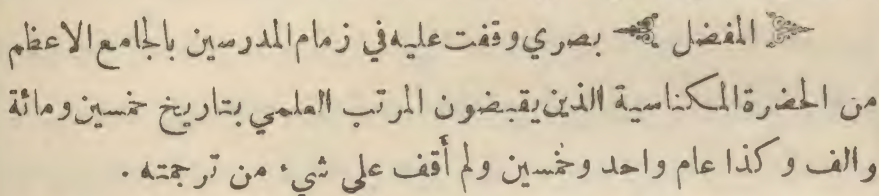 المفضل بصري وقفت عليه في زمام المدرسين بالجامع الاعظم
من الحضرة المكناسية الذين يقبضون المرتب العلمي بتاريخ خمسين ومائة
والف وكذا عام واحد وخمسين ولم أقف على شيء من ترجمته .